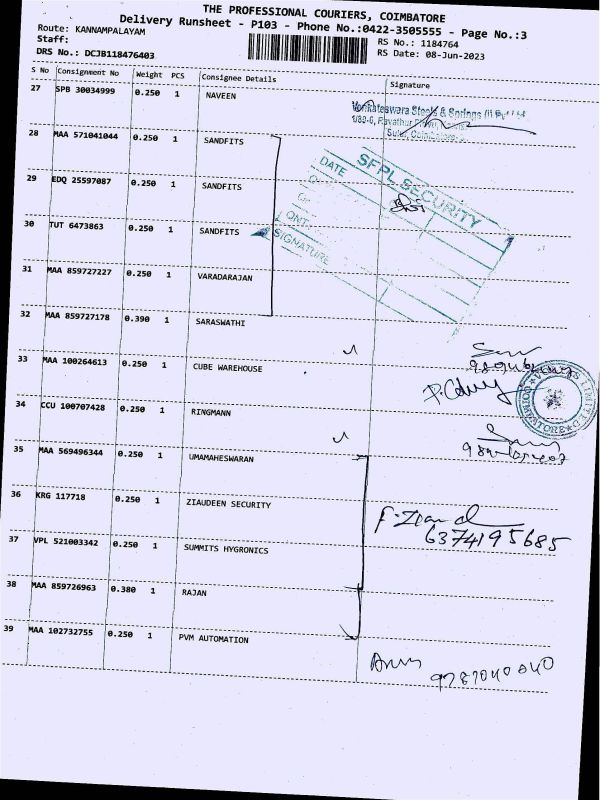 THE PROFESSIONAL COURIERS, COIMBATORE
Delivery Runsheet - P103 - Phone No.:0422-3505555 - Page No.:3
Route: KANNAMPALAYAM
Staff:
RS No.: 1184764
DRS No.: DCJB118476403
RS Date: 08-Jun-2023
S No Consignment No Weight PCS Consignee Details Signature
27 SPB 30034999 0.250 1 NAVEEN
Venkateswara Steels & Springs (I)
28 MAA 571041044 0.250 1 SANDFITS
29 EDQ 25597087 0.250 1 SANDFITS
SFPL SECURITY
DATE
QNT.
SIGNATURE
30 TUT 6473863 0.250 1 SANDFITS
31 MAA 859727227 0.250 1 VARADARAJAN
32 MAA 859727178 0.390 1 SARASWATHI
33 MAA 100264613 0.250 1 CUBE WAREHOUSE
34 CCU 100707428 0.250 1 RINGMANN
COIMBATORE
35 MAA 569496344 0.250 1 UMAMAHESWARAN
36 KRG 117718 0.250 1 ZIAUDEEN SECURITY
6374195685
37 VPL 521003342 0.250 1 SUMMITS HYGRONICS
38 MAA 859726963 0.380 1 RAJAN
39 MAA 102732755 0.250 1 PVM AUTOMATION
9787040040